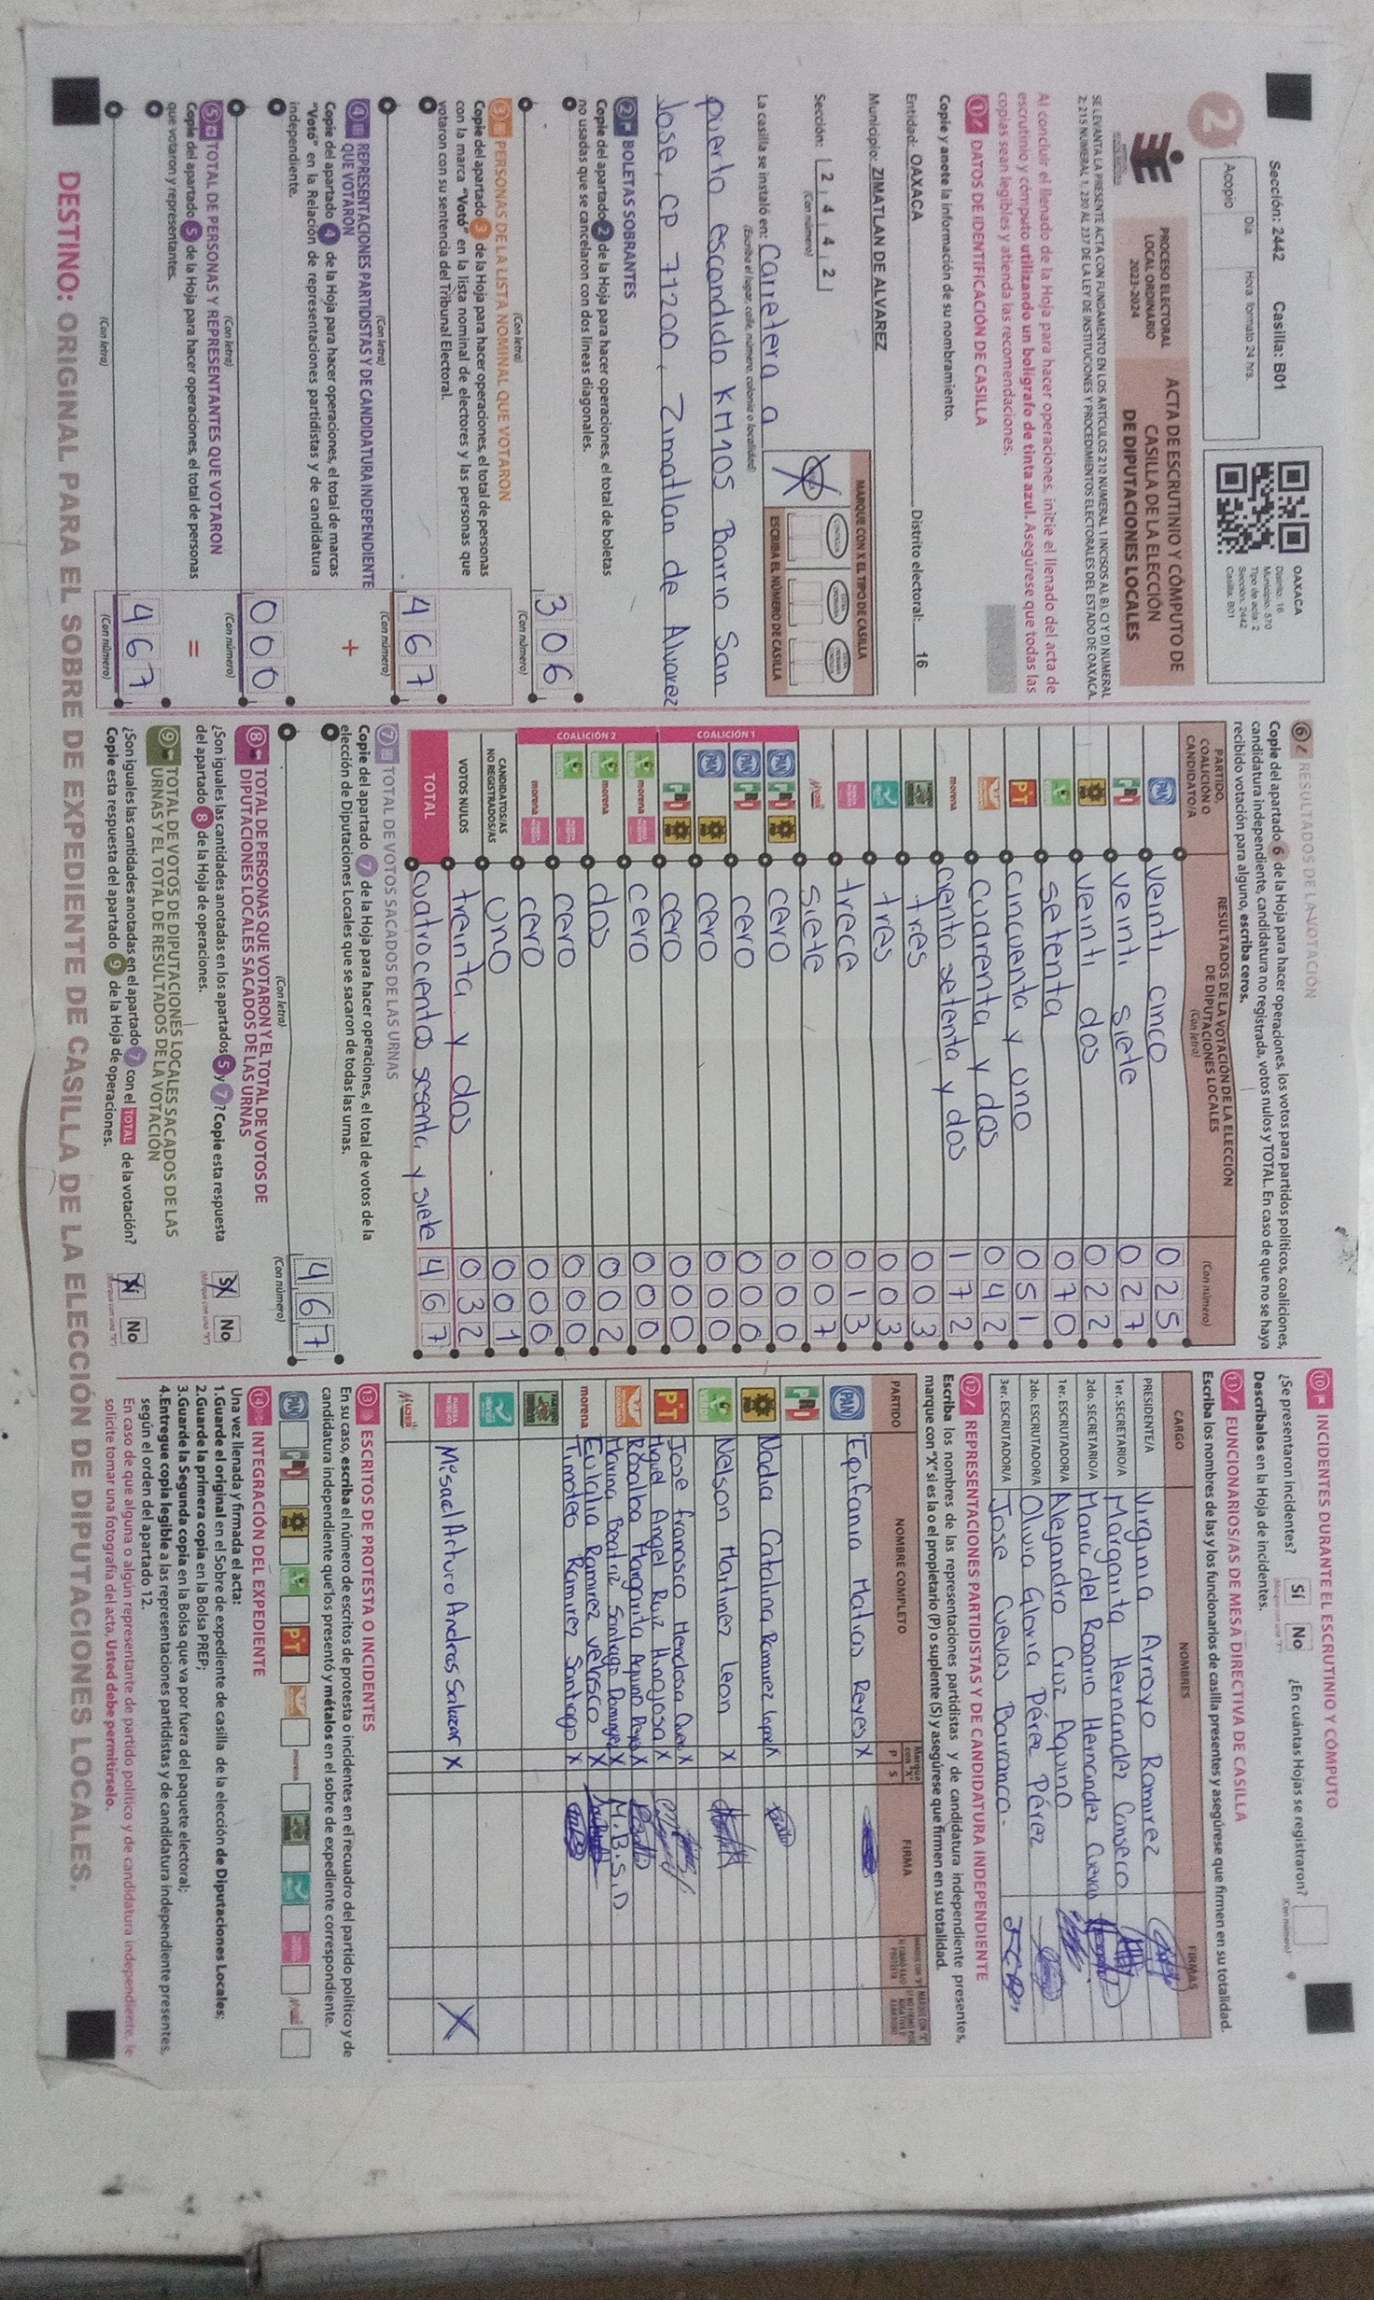 Sección: 2442 Casilla: B01
Día Hora formato 24 hrs.
2 Acopio
OAXACA
Distrito: 16
Municipio: 570
Tipo de acta: 2
Sección: 2442
Casilla: B01
PROCESO ELECTORAL
LOCAL ORDINARIO
2023-2024
ACTA DE ESCRUTINIO Y CÓMPUTO DE
CASILLA DE LA ELECCIÓN
DE DIPUTACIONES LOCALES
SE LEVANTA LA PRESENTE ACTA CON FUNDAMENTO EN LOS ARTÍCULOS 212 NUMERAL 1 INCISOS A), B), C) Y D) NUMERAL
2; 215 NUMERAL 1; 230 AL 237 DE LA LEY DE INSTITUCIONES Y PROCEDIMIENTOS ELECTORALES DEL ESTADO DE OAXACA.
Al concluir el llenado de la Hoja para hacer operaciones, inicie el llenado del acta de
escrutinio y cómputo utilizando un bolígrafo de tinta azul. Asegúrese que todas las
copias sean legibles y atienda las recomendaciones.
1 DATOS DE IDENTIFICACIÓN DE CASILLA
Copie y anote la información de su nombramiento.
Entidad: OAXACA Distrito electoral: 16
Municipio: ZIMATLAN DE ALVAREZ
Sección: 2 4 4 2
(Con número)
MARQUE CON X EL TIPO DE CASILLA
ESCRIBA EL NÚMERO DE CASILLA
La casilla se instaló en: Carretera a
(Escriba el lugar, calle, número, colonia o localidad)
puerto escondido KM 105 Barrio San
Jose, CP 71200, Zimatlan de Alvarez
2 BOLETAS SOBRANTES
Copie del apartado 2 de la Hoja para hacer operaciones, el total de boletas
no usadas que se cancelaron con dos líneas diagonales.
306
(Con letra) (Con número)
3 PERSONAS DE LA LISTA NOMINAL QUE VOTARON
Copie del apartado 3 de la Hoja para hacer operaciones, el total de personas
con la marca "Votó" en la lista nominal de electores y las personas que
votaron con su sentencia del Tribunal Electoral.
467
(Con letra) (Con número)
4 REPRESENTACIONES PARTIDISTAS Y DE CANDIDATURA INDEPENDIENTE
QUE VOTARON
Copie del apartado 4 de la Hoja para hacer operaciones, el total de marcas
"Votó" en la Relación de representaciones partidistas y de candidatura
independiente.
+
000
(Con letra) (Con número)
5 TOTAL DE PERSONAS Y REPRESENTANTES QUE VOTARON
Copie del apartado 5 de la Hoja para hacer operaciones, el total de personas
que votaron y representantes.
=
467
(Con letra) (Con número)
6 RESULTADOS DE LA VOTACIÓN
Copie del apartado 6 de la Hoja para hacer operaciones, los votos para partidos políticos, coaliciones,
candidatura independiente, candidatura no registrada, votos nulos y TOTAL. En caso de que no se haya
recibido votación para alguno, escriba ceros.
PARTIDO,
COALICIÓN O
CANDIDATO/A
RESULTADOS DE LA VOTACIÓN DE LA ELECCIÓN
DE DIPUTACIONES LOCALES
(Con letra) (Con número)
PAN veinti cinco 025
PRI veinti siete 027
veinti dos 022
setenta 070
PT cincuenta y uno 051
cuarenta y dos 042
morena ciento setenta y dos 172
tres 003
tres 003
trece 013
siete 007
COALICIÓN 1
PAN PRI cero 000
PAN PRI cero 000
PAN cero 000
PRI cero 000
COALICIÓN 2
morena cero 000
morena dos 002
cero 000
morena cero 000
CANDIDATOS/AS
NO REGISTRADOS/AS uno 001
VOTOS NULOS treinta y dos 032
TOTAL cuatrocientos sesenta y siete 467
7 TOTAL DE VOTOS SACADOS DE LAS URNAS
Copie del apartado 7 de la Hoja para hacer operaciones, el total de votos de la
elección de Diputaciones Locales que se sacaron de todas las urnas.
467
(Con letra) (Con número)
8 TOTAL DE PERSONAS QUE VOTARON Y EL TOTAL DE VOTOS DE
DIPUTACIONES LOCALES SACADOS DE LAS URNAS
¿Son iguales las cantidades anotadas en los apartados 5 y 7? Copie esta respuesta
del apartado 8 de la Hoja de operaciones.
Sí No
9 TOTAL DE VOTOS DE DIPUTACIONES LOCALES SACADOS DE LAS
URNAS Y EL TOTAL DE RESULTADOS DE LA VOTACIÓN
¿Son iguales las cantidades anotadas en el apartado 7 con el TOTAL de la votación?
Copie esta respuesta del apartado 9 de la Hoja de operaciones.
Sí No
10 INCIDENTES DURANTE EL ESCRUTINIO Y CÓMPUTO
¿Se presentaron incidentes? Sí No ¿En cuántas Hojas se registraron?
(Con número)
Descríbalos en la Hoja de incidentes.
11 FUNCIONARIOS/AS DE MESA DIRECTIVA DE CASILLA
Escriba los nombres de las y los funcionarios de casilla presentes y asegúrese que firmen en su totalidad.
CARGO NOMBRES FIRMAS
PRESIDENTE/A Virginia Arroyo Ramirez
1er. SECRETARIO/A Margarita Hernandez Conseco
2do. SECRETARIO/A Maria del Rosario Hernandez Cuevas
1er. ESCRUTADOR/A Alejandro Goz Aquino
2do. ESCRUTADOR/A Olivia Gloria Pérez Pérez
3er. ESCRUTADOR/A Jose Cuevas Barranco.
12 REPRESENTACIONES PARTIDISTAS Y DE CANDIDATURA INDEPENDIENTE
Escriba los nombres de las representaciones partidistas y de candidatura independiente presentes,
marque con "X" si es la o el propietario (P) o suplente (S) y asegúrese que firmen en su totalidad.
PARTIDO NOMBRE COMPLETO P S FIRMA
PAN Epifania Matias Reyes X
PRI
Nadia Catalina Ramirez Lopez X
Nelson Martinez Leon X
PT Jose francisco Mendosa X
Miguel Angel Ruiz Hinojosa X
Rosalba Margarita Aquino Reyes X
Marina Beatriz Santiago Dominguez X M.B.S.D
morena Eulalia Ramirez Velasco X
Timoteo Ramirez Santiago X
Misael Arturo Andres Salazar X X
13 ESCRITOS DE PROTESTA O INCIDENTES
En su caso, escriba el número de escritos de protesta o incidentes en el recuadro del partido político y de
candidatura independiente que los presentó y métalos en el sobre de expediente correspondiente.
PAN PRI PT morena
14 INTEGRACIÓN DEL EXPEDIENTE
Una vez llenada y firmada el acta:
1.Guarde el original en el Sobre de expediente de casilla de la elección de Diputaciones Locales;
2.Guarde la primera copia en la Bolsa PREP;
3.Guarde la Segunda copia en la Bolsa que va por fuera del paquete electoral;
4.Entregue copia legible a las representaciones partidistas y de candidatura independiente presentes,
según el orden del apartado 12.
En caso de que alguna o algún representante de partido político y de candidatura independiente, le
solicite tomar una fotografía del acta, Usted debe permitírselo.
DESTINO: ORIGINAL PARA EL SOBRE DE EXPEDIENTE DE CASILLA DE LA ELECCIÓN DE DIPUTACIONES LOCALES.